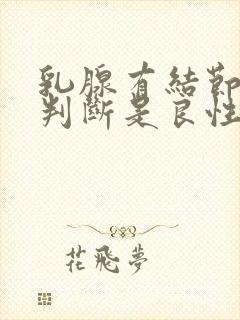 乳腺有結節
判斷是良性
花飛夢